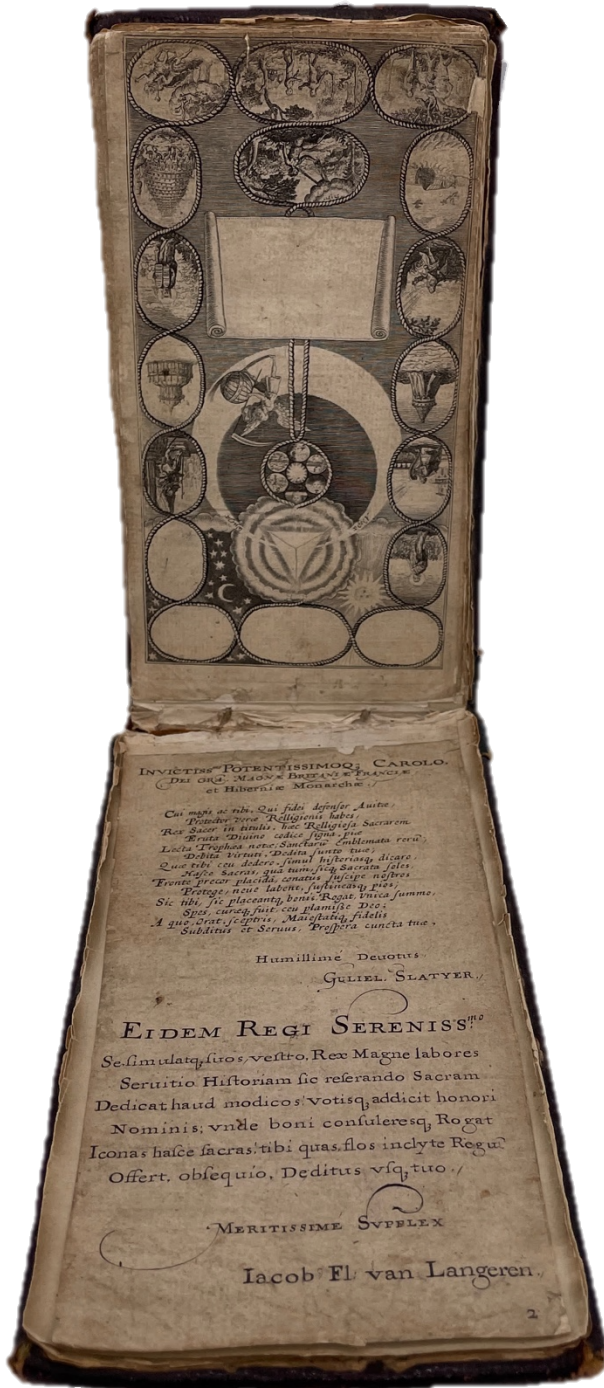 INVICTISS.mo POTENTISSIMOQ; CAROLO,
DEI GRA. MAGNÆ BRITANIÆ FRANCIÆ
et Hiberniæ Monarchæ.
Cui magis ac tibi, Qui fidei defensor Auitæ,
Protector veræ Relligionis habes,
Rex Sacer in titulis, hæc Relligiosa Sacrarem
Eruta Diuino codice signa, piæ
Lecta Trophæa notæ, Sanctarū Emblemata rerū,
Debita Virtuti, Dedita sunto tuæ;
Quæ tibi ceu dedero, simul historiasq, dicaro,
Hasce Sacras, qua tum, sicq, Sacrata soles
Fronte precor placida, conatus suscipe nostros
Protege, neue labent, sustineasq, pios,
Sic tibi, sic placeantq, bonis, Rogat, vnica summo,
Spes, curæq, fuit, ceu plamisse Deo;
A quo, Orat, sceptris, Maiestatiq, fidelis
Subditus et Seruus, Prospera cuncta tuæ.
Humillimé Deuotus
GULIEL. SLATYER.
EIDEM REGI SERENISS.mo
Se simulatq, suos, vestro, Rex Magne labores
Seruitio Historiam sic reserando Sacram
Dedicat haud modicos; votisq, addicit honori
Nominis; vnde boni consuleresq, Rogat
Iconas hasce sacras, tibi quas, flos inclyte Regū
Offert, obsequio, Deditus vsq, tuo.
MERITISSIMÉ SVPPLEX
Iacob Fl. van Langeren.
2